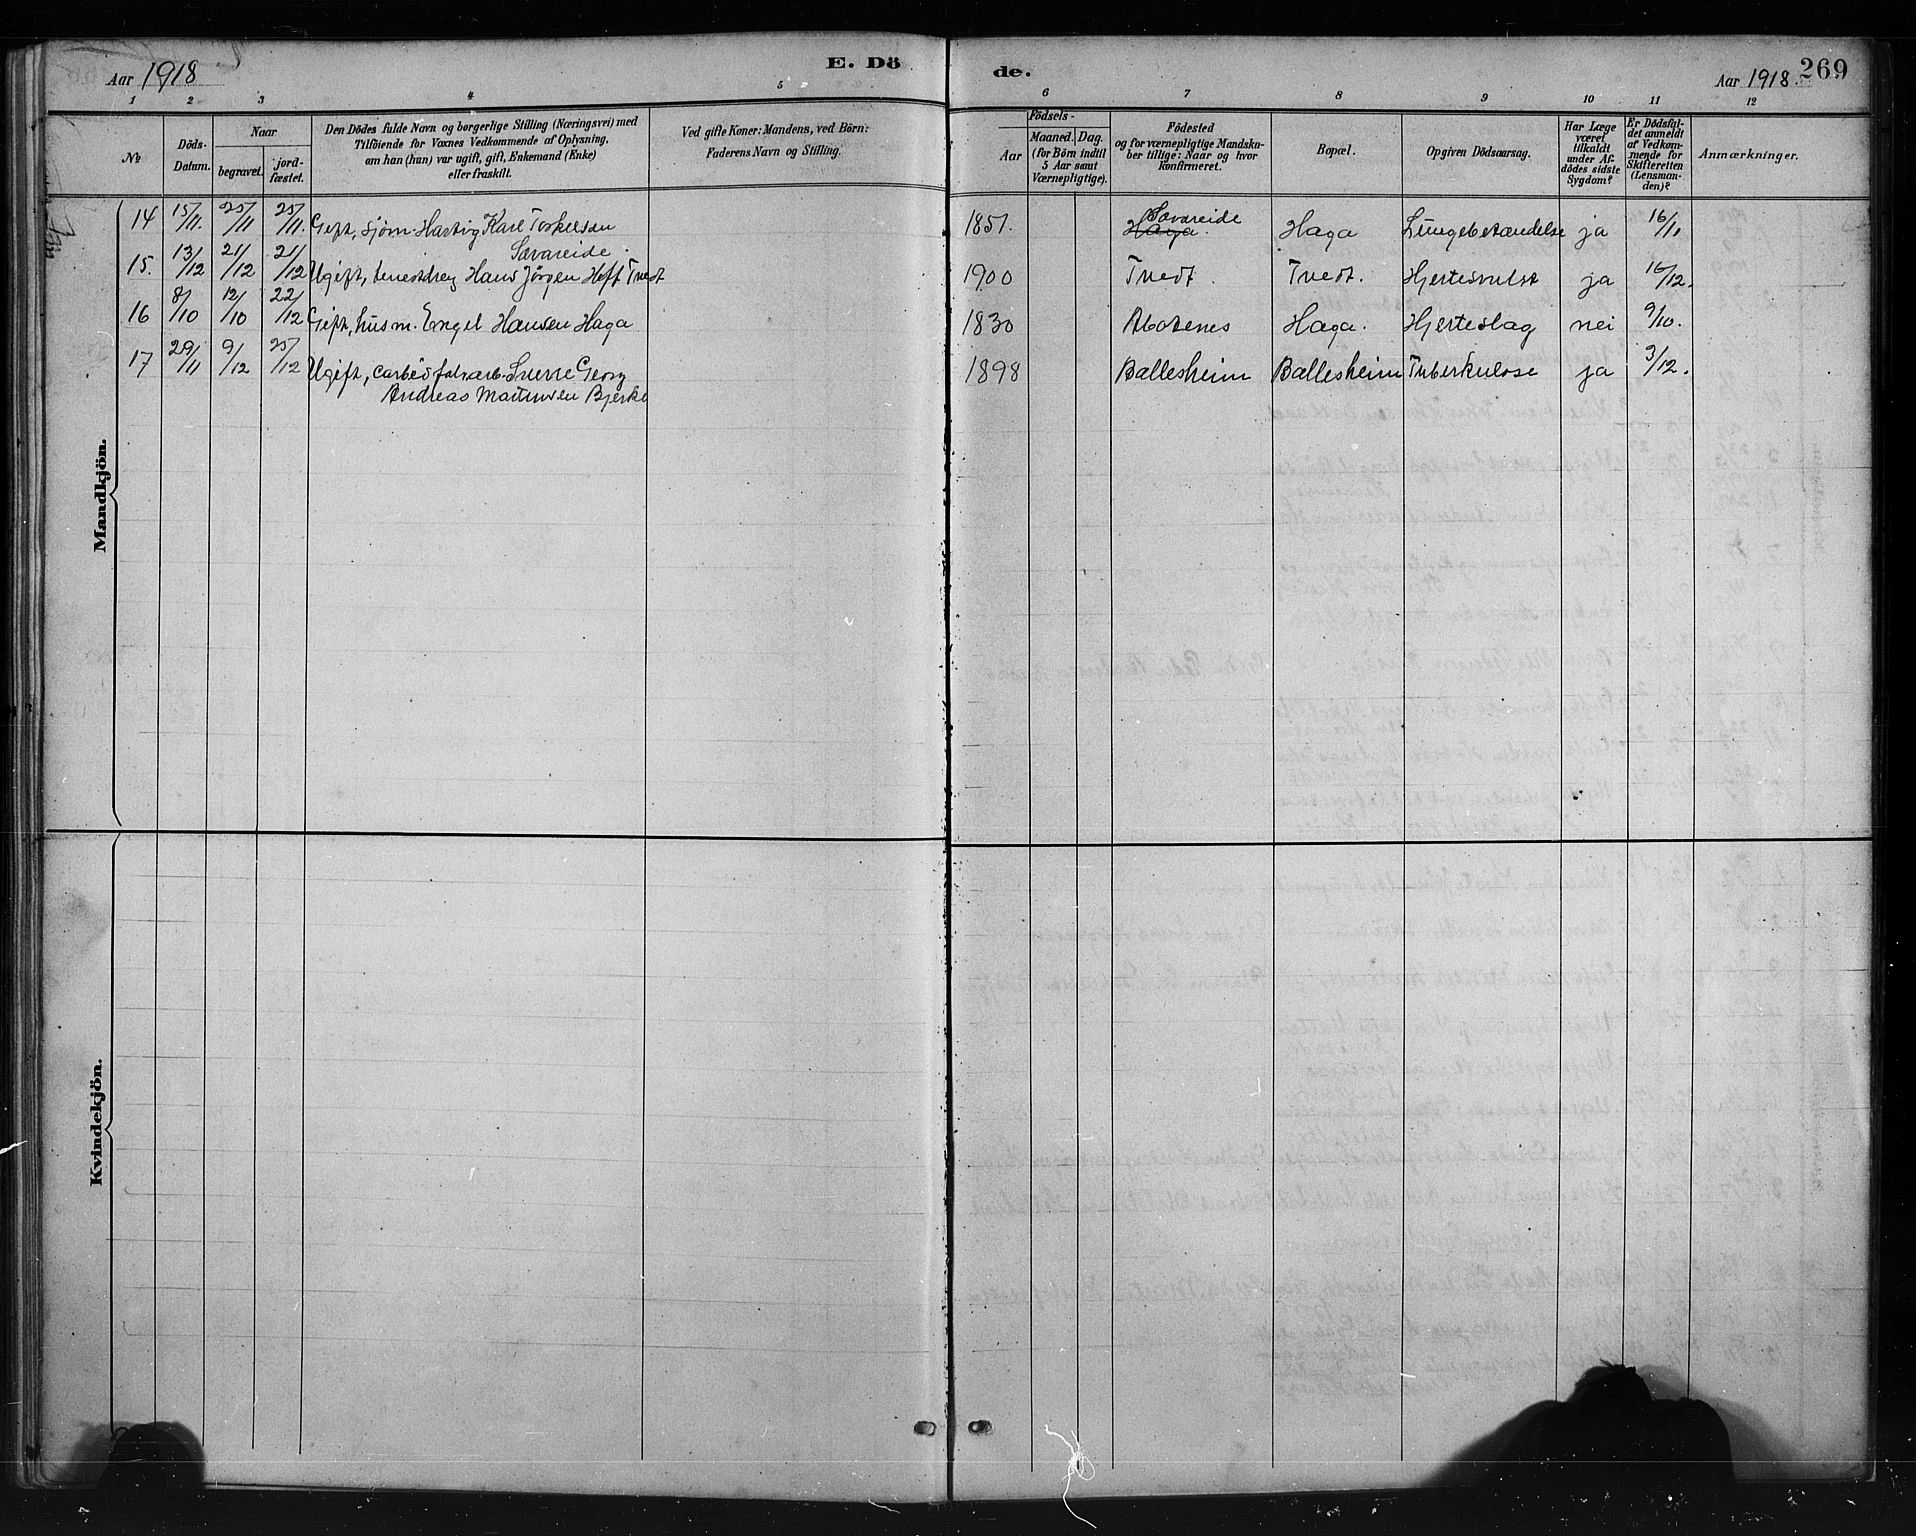 Aar 1918
E. Dö
de.
Aar 1918.
269
1 2 3 4 5 6 7 8 9 10 11 12
No
Döds-
Datum.
Naar
begravet.
jord-
fæstet.
Den Dödes fulde Navn og borgerlige Stilling (Næringsvei) med
Tilföiende for Voxnes Vedkommende af Oplysning,
om han (hun) var ugift, gift, Enkemand (Enke)
eller fraskilt.
Ved gifte Koner: Mandens, ved Börn:
Faderens Navn og Stilling.
Födsels-
Aar
Maaned. Dag.
(for Börn indtil
5 Aar samt
Værnepligtige).
Födested
og for værnepligtige Mandska-
ber tillige: Naar og hvor
konfirmeret.
Bopæl.
Opgiven Dödsaarsag.
Har Læge
været
tilkaldt
under Af-
dödes sidste
Sygdom?
Er Dödsfal-
det anmeldt
af Vedkom-
mende for
Skifteretten
(Lensman-
den)?
Anmærkninger.
Mandkjön.
14 15/11. 25/11 25/11. Gift, sjøm. Hartvig Karl Torkelsen
Sævareide.
1851. Haga. Sævareide Haga Lungebetændelse ja 16/11
15. 13/12 21/12 21/12 Ugift, tenestdreng Hans Jørgen Hoff Tvedt
1900 Tvedt. Tvedt. Hjertesvulst ja 16/12.
16 8/10 12/10 22/12 Gift, husm. Engel Hansen Haga
1830 Haga. Hjerteslag nei 9/10.
17 29/11 9/12 25/12 Ugift, carbidfabr.arb. Sverre Georg
Andreas Bjerke
1898 Ballesheim Ballesheim Tuberkulose ja 3/12.
Kvindekjön.